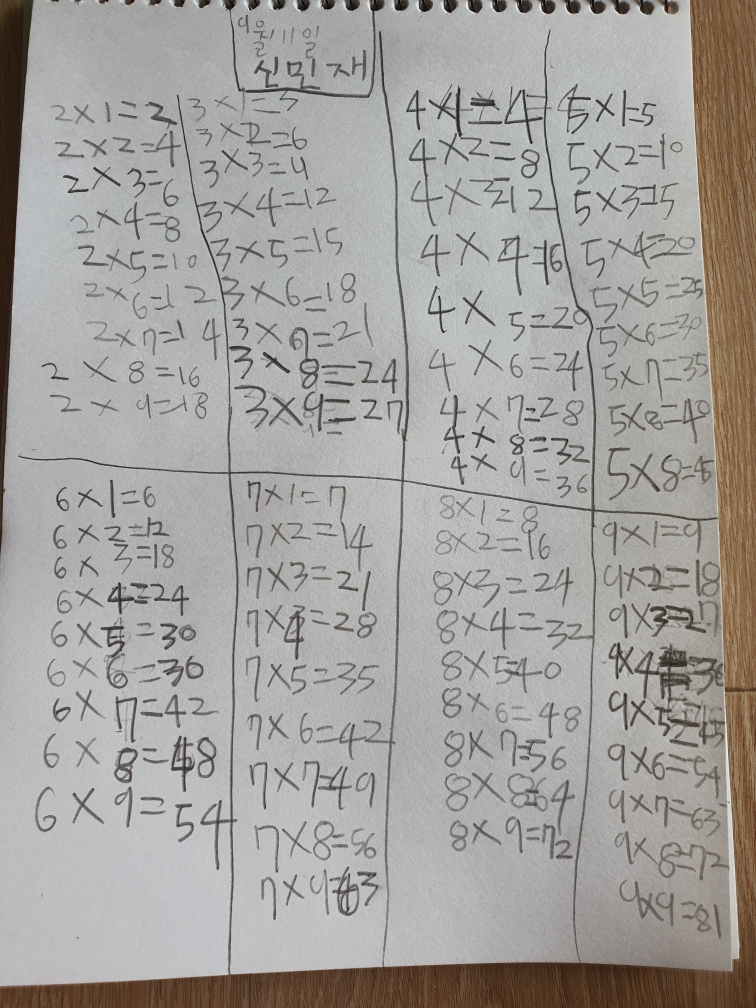 9월 11일
신민재
2×1=2
2×2=4
2×3=6
2×4=8
2×5=10
2×6=12
2×7=14
2×8=16
2×9=18
3×1=3
3×2=6
3×3=9
3×4=12
3×5=15
3×6=18
3×7=21
3×8=24
3×9=27
4×1=4
4×2=8
4×3=12
4×4=16
4×5=20
4×6=24
4×7=28
4×8=32
4×9=36
5×1=5
5×2=10
5×3=15
5×4=20
5×5=25
5×6=30
5×7=35
5×8=40
5×8=45
6×1=6
6×2=12
6×3=18
6×4=24
6×5=30
6×6=36
6×7=42
6×8=48
6×9=54
7×1=7
7×2=14
7×3=21
7×4=28
7×5=35
7×6=42
7×7=49
7×8=56
7×9=63
8×1=8
8×2=16
8×3=24
8×4=32
8×5=40
8×6=48
8×7=56
8×8=64
8×9=72
9×1=9
9×2=18
9×3=27
9×4=36
9×5=45
9×6=54
9×7=63
9×8=72
9×9=81